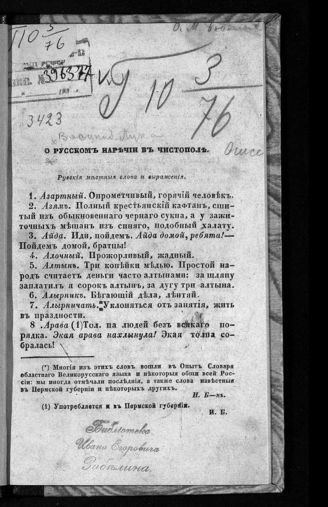 П10 3/76
№ 396377
П10 3/76
3423
О РУССКОМЪ НАРѢЧІИ ВЪ ЧИСТОПОЛѢ.
Рускія мѣстныя слова и выраженія.
1. Азартный. Опрометчивый, горячій человѣкъ.
2. Азямъ. Полный крестьянскій кафтанъ, сши-
тый изъ обыкновеннаго чернаго сукна, а у зажи-
точныхъ мѣщанъ изъ синяго, подобный халату.
3. Айда. Иди, пойдемъ. Айда домой, ребята!—
Пойдемъ домой, братцы!
4. Алочный. Прожорливый, жадный.
5. Алтынъ. Три копѣйки мѣдью. Простой на-
родъ считаетъ деньги часто алтынами: за шляпу
заплатилъ я сорокъ алтынъ, за дугу три алтына.
6. Алырникъ. Бѣгающій дѣла, лѣнтяй.
7. Алырничать. Уклоняться отъ занятія, жить
въ праздности.
8 Арава (1) Толпа людей безъ всякаго по-
рядка. Экая арава нахлынула! Экая толпа со-
бралась!
(*) Многія изъ этихъ словъ вошли въ Опытъ Словаря
областнаго Великорусскаго языка и нѣкоторыя общи всей Рос-
сіи: мы иногда отмѣчали послѣднія, а также слова извѣстныя
въ Пермской губерніи и нѣкоторыхъ другихъ.
И. Б—нъ.
(1) Употребляется и въ Пермской губерніи.
И. Б.
Библіотека
Ивана Егоровича
Забѣлина